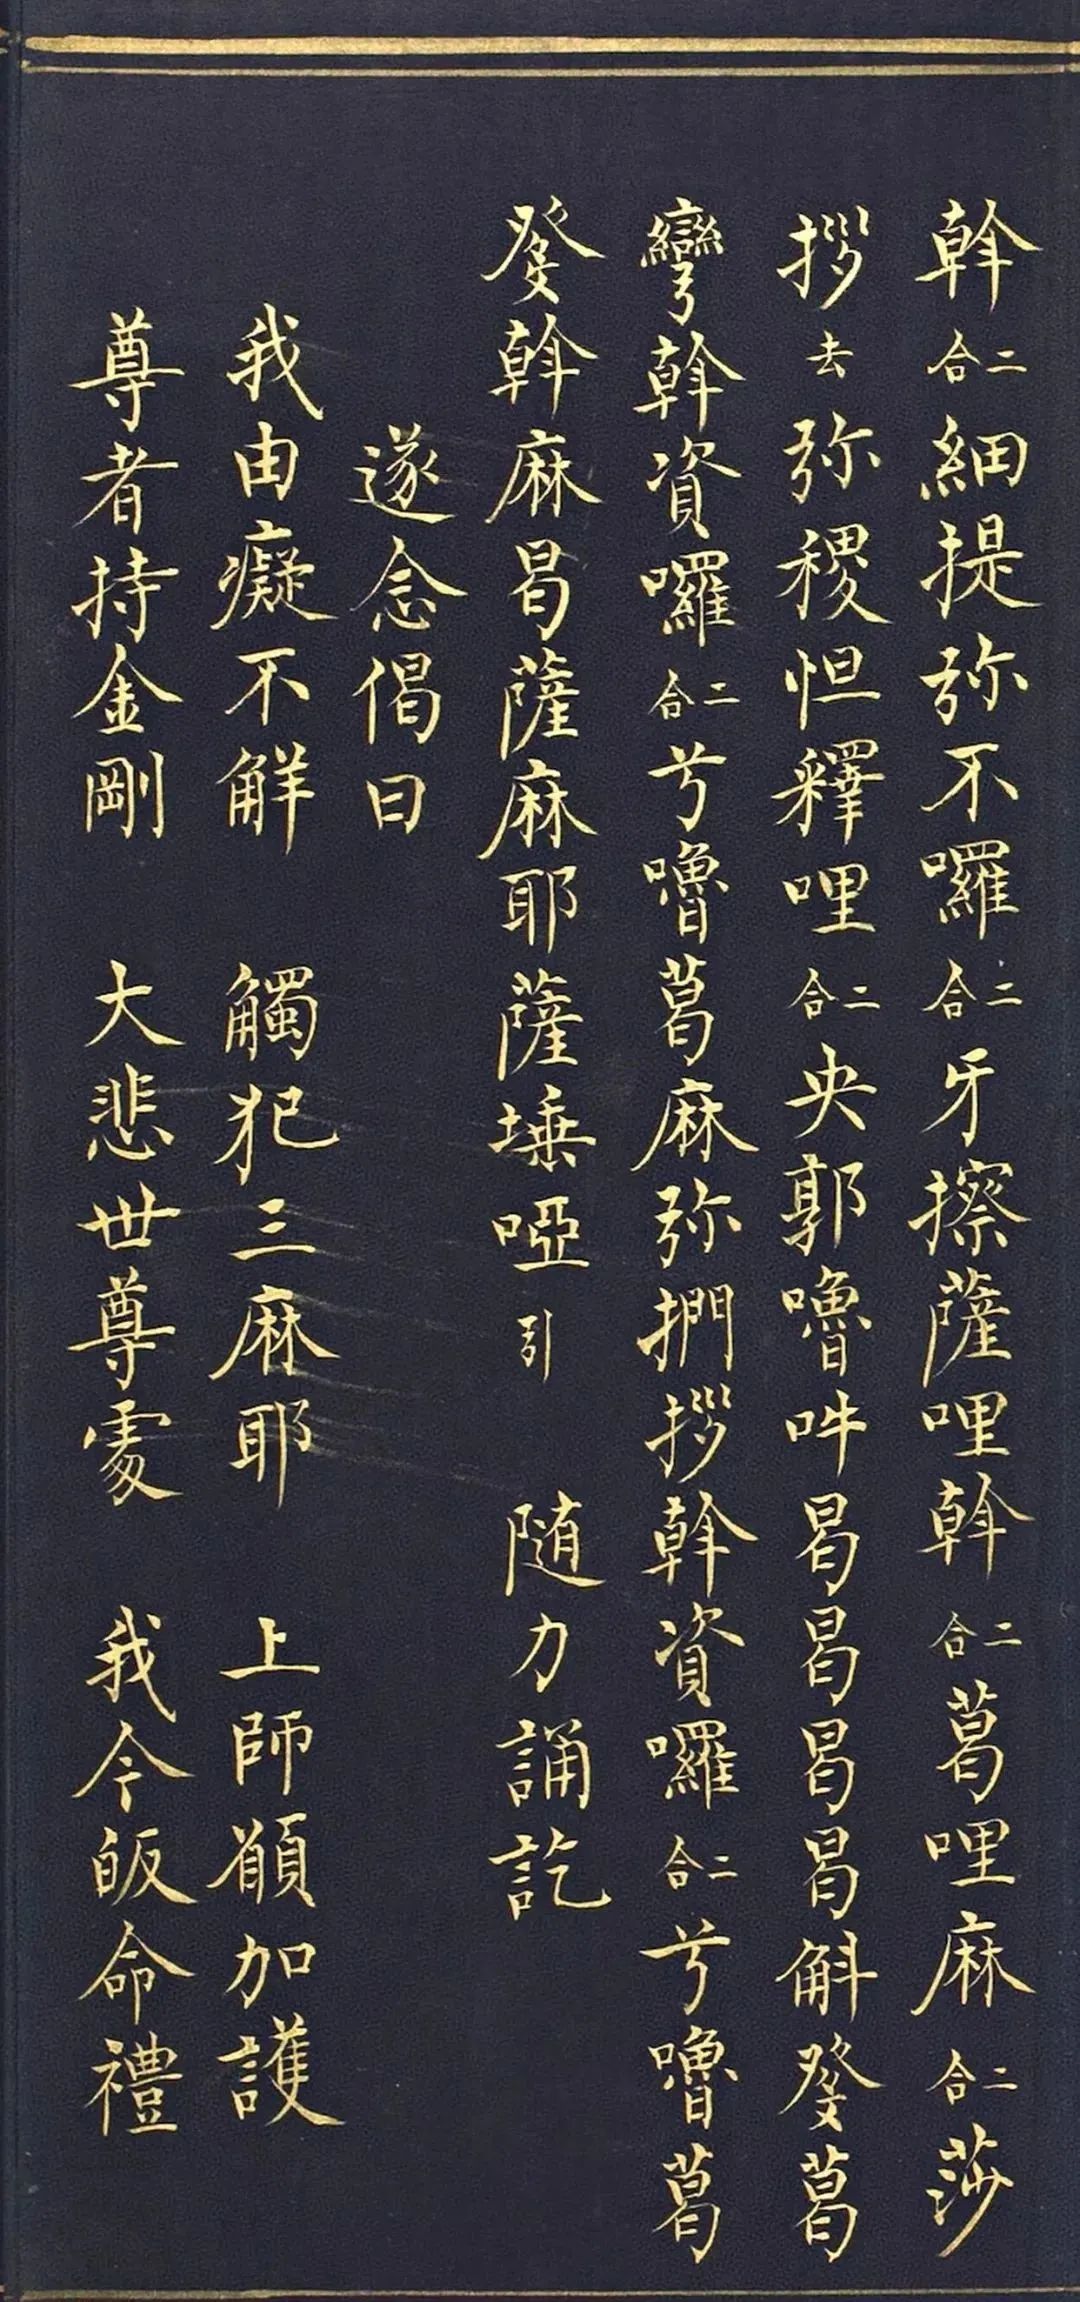 斡二合細提弥不囉二合牙擦薩哩斡二合葛哩麻二合莎
拶去弥稷怛釋哩二合央郭嚕吽曷曷曷曷斛發葛
彎斡資囉二合兮嚕葛麻弥捫拶斡資囉二合兮嚕葛
發斡麻曷薩麻耶薩埵啞引 随力誦訖
遂念偈曰
我由癡不解 觸犯三麻耶 上師願加護
尊者持金剛 大悲世尊處 我今皈命禮